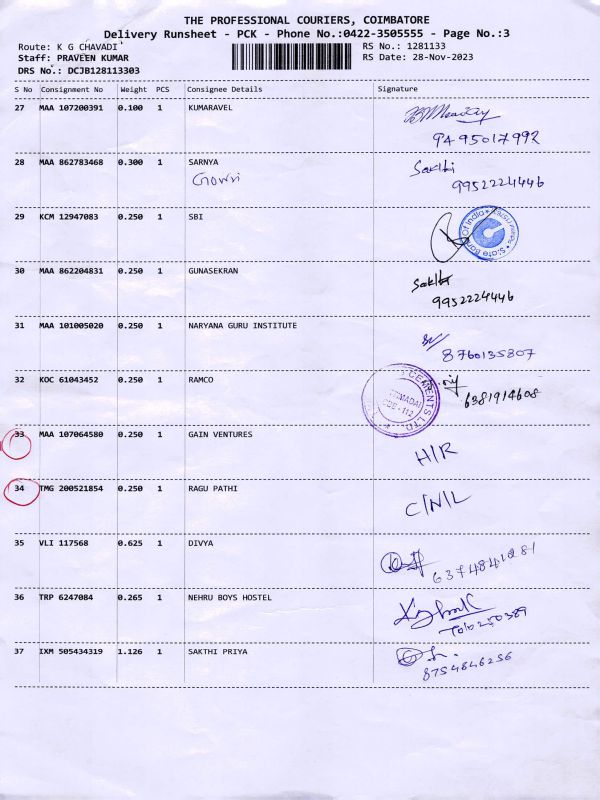 THE PROFESSIONAL COURIERS, COIMBATORE
Delivery Runsheet - PCK - Phone No.:0422-3505555 - Page No.:3
Route: K G CHAVADI RS No.: 1281133
Staff: PRAVEEN KUMAR RS Date: 28-Nov-2023
DRS No.: DCJB128113303
S No Consignment No Weight PCS Consignee Details Signature
27 MAA 107200391 0.100 1 KUMARAVEL
9495017992
28 MAA 862783468 0.300 1 SARNYA Sakthi
Gowri 9952224446
29 KCM 12947083 0.250 1 SBI
State Bank Of India
30 MAA 862204831 0.250 1 GUNASEKRAN Sakthi
9952224446
31 MAA 101005020 0.250 1 NARYANA GURU INSTITUTE
8760135807
32 KOC 61043452 0.250 1 RAMCO CEMENTS LTD.
6381914608
33 MAA 107064580 0.250 1 GAIN VENTURES H/R
34 TMG 200521854 0.250 1 RAGU PATHI C/N/L
35 VLI 117568 0.625 1 DIVYA
6374841281
36 TRP 6247084 0.265 1 NEHRU BOYS HOSTEL
37 IXM 505434319 1.126 1 SAKTHI PRIYA
8754846256